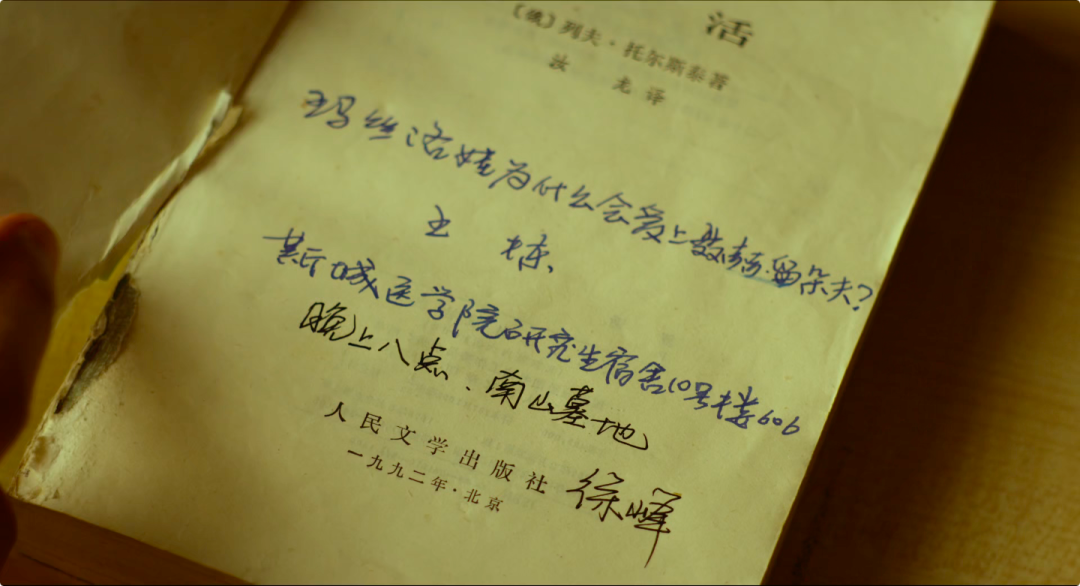 活
〔俄〕列夫·托尔斯泰著
汝 龙译
玛丝洛娃为什么会爱上聂赫留朵夫？
王 栋
新城医学院研究生宿舍10号楼606
晚上八点、南山墓地
人民文学出版社
徐峰
一九九二年·北京